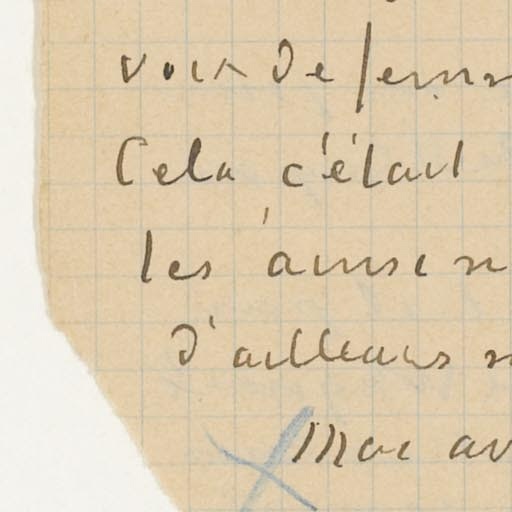 voix de femm
Cela c'était
les amuse n
d'ailleurs n
Moi av